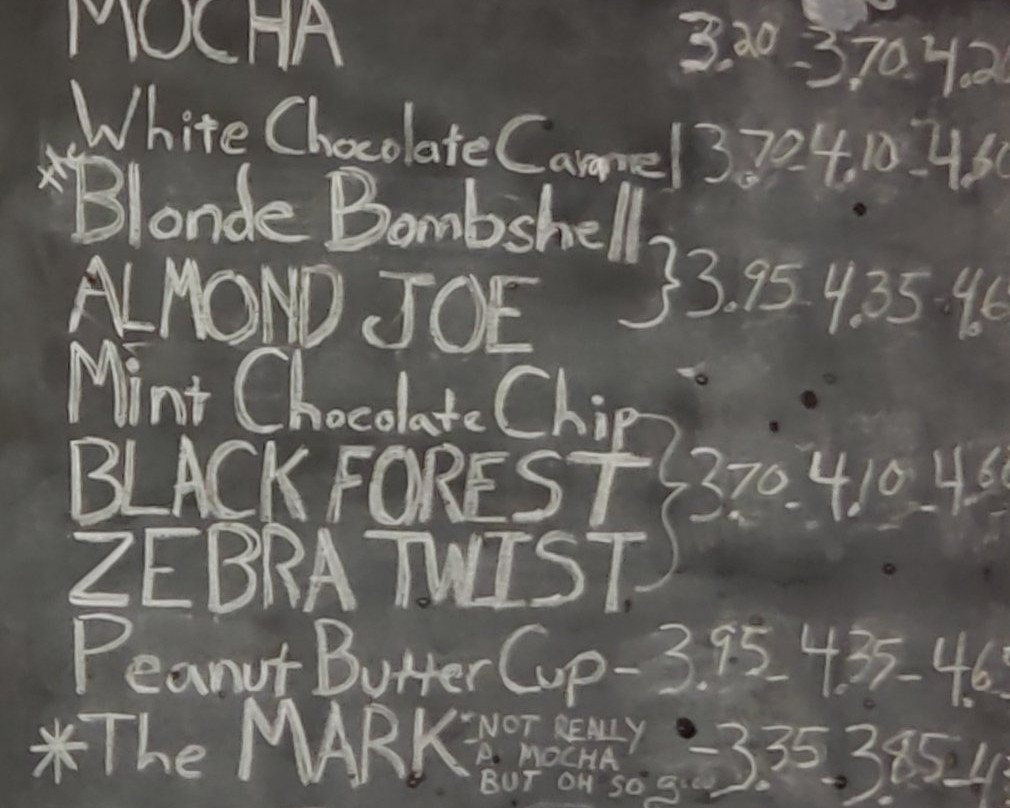 MOCHA 3.20 - 3.70 - 4.20
White Chocolate Caramel 3.70 - 4.10 - 4.60
**Blonde Bombshell
ALMOND JOE } 3.95 - 4.35 - 4.6
Mint Chocolate Chip
BLACK FOREST } 3.70 - 4.10 - 4.60
ZEBRA TWIST
Peanut Butter Cup - 3.95 - 4.35 - 4.6
*The MARK *NOT REALLY - 3.35 - 3.85 - 4
A MOCHA
BUT OH SO good